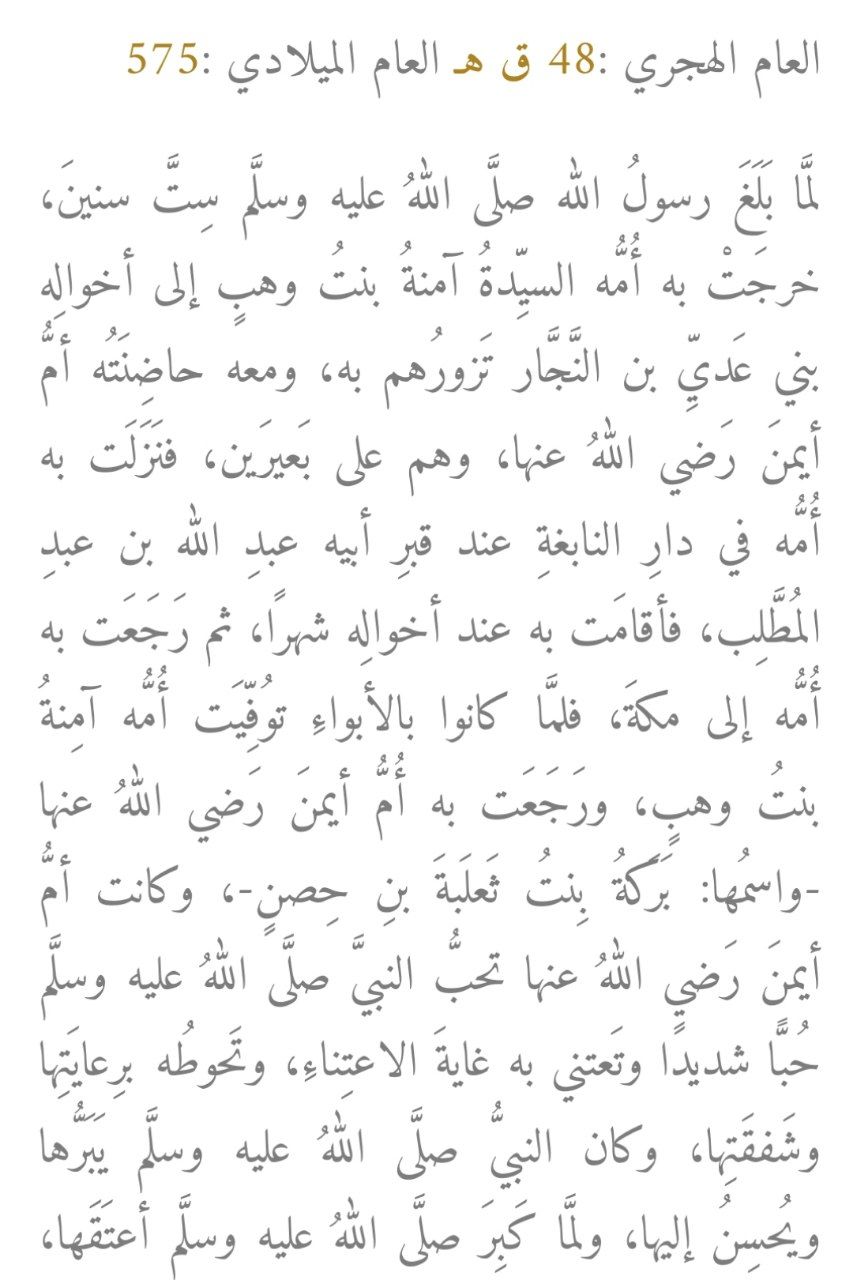 العام الهجري :48 ق هـ العام الميلادي :575
لمَّا بَلَغَ رسولُ الله صلَّى اللهُ عليه وسلَّم سِتَّ سنينَ،
خرجَتْ به أُمُّه السيِّدةُ آمنةُ بنتُ وهبٍ إلى أخوالِه
بني عَديِّ بن النَّجَّار تَزورُهم به، ومعه حاضِنَتُه أمُّ
أيمنَ رَضي اللهُ عنها، وهم على بَعيرَين، فنَزَلَت به
أُمُّه في دارِ النابغةِ عند قبرِ أبيه عبدِ الله بن عبدِ
المُطَّلِب، فأقامَت به عند أخوالِه شهرًا، ثم رَجَعَت به
أُمُّه إلى مكةَ، فلمَّا كانوا بالأبواءِ توُفِّيَت أُمُّه آمِنةُ
بنتُ وهبٍ، ورَجَعَت به أُمُّ أيمنَ رَضي اللهُ عنها
-واسمُها: بَرَكةُ بِنتُ ثَعلَبةَ بنِ حِصنٍ-، وكانت أمُّ
أيمنَ رَضي اللهُ عنها تحبُّ النبيَّ صلَّى اللهُ عليه وسلَّم
حُبًّا شديدًا وتَعتني به غايةَ الاعتِناءِ، وتَحوطُه برِعايَتِها
وشَفقَتِها، وكان النبيُّ صلَّى اللهُ عليه وسلَّم يَبَرُّها
ويُحسِنُ إليها، ولمَّا كَبِرَ صلَّى اللهُ عليه وسلَّم أعتَقَها،